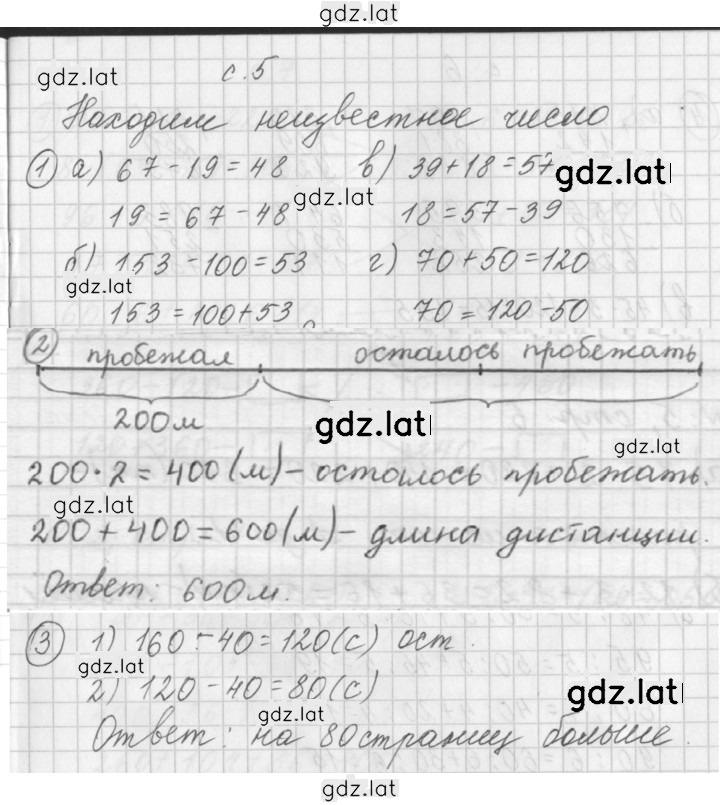 gdz.lat
gdz.lat
с.5
Находим неизвестное число
1 а) 67-19=48 в) 39+18=57
gdz.lat
gdz.lat
19=67-48 18=57-39
б) 153-100=53 г) 70+50=120
gdz.lat
153=100+53 70=120-50
2 пробежал осталось пробежать
200 м
gdz.lat
gdz.lat
200·2=400(м)-осталось пробежать.
gdz.lat
200+400=600(м)-длина дистанции.
Ответ: 600 м.
3 1) 160-40=120(с) ост.
gdz.lat
2) 120-40=80(с)
gdz.lat
gdz.lat
Ответ: на 80 страниц больше.
gdz.lat